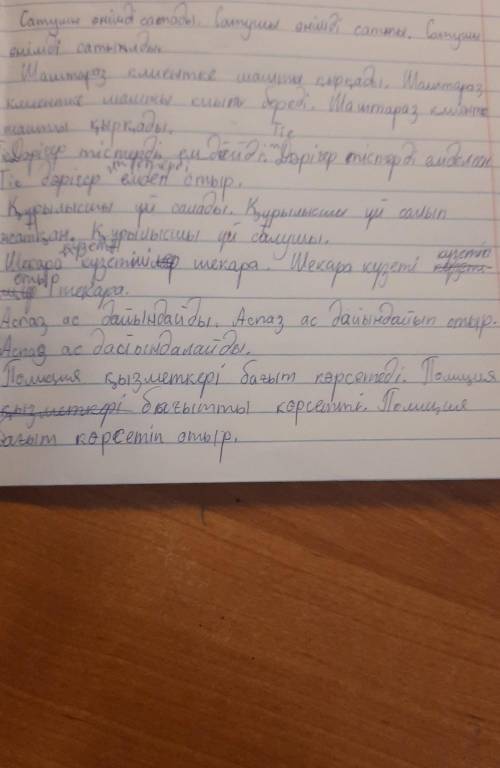 Сатушы өнімд сатады. Сатушы өнімді сатты. Сатушы
өнімді сатылды.
Шаштараз клиентке шашты қырқады. Шаштараз
клиентке шашты қиып береді. Шаштараз клиентке
шашты қырқады.
Тіс
Дәрігер тістерді емдейді. Дәрігер тістерді емделген
Тіс дәрігер тістерді емдеп отыр.
Құрылысшы үй салады. Құрылысшы үй салып
жатқан. Құрылысшы үй салушы.
Шекара күзетші шекара. Шекара күзеті күзетіп
отыр шекара.
Аспаз ас дайындайды. Аспаз ас дайындайып отыр.
Аспаз ас дайындалайды.
Полиция қызметкері бағыт көрсетеді. Полиция
қызметкері бағытты көрсетті. Полиция
бағыт көрсетіп отыр.